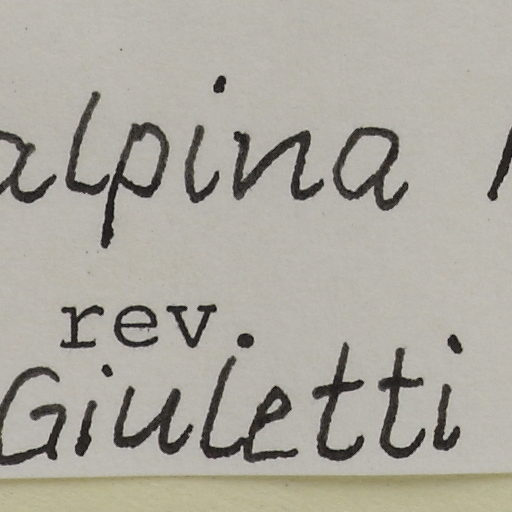 alpina
rev.
Giuletti